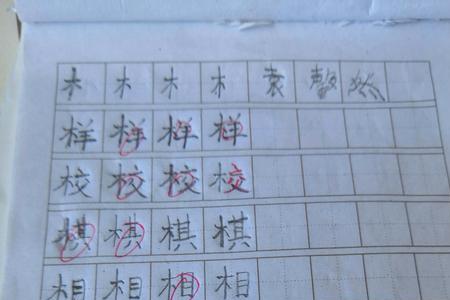 木木木木袁
样样样样
校校校校
棋棋棋棋
相相相相